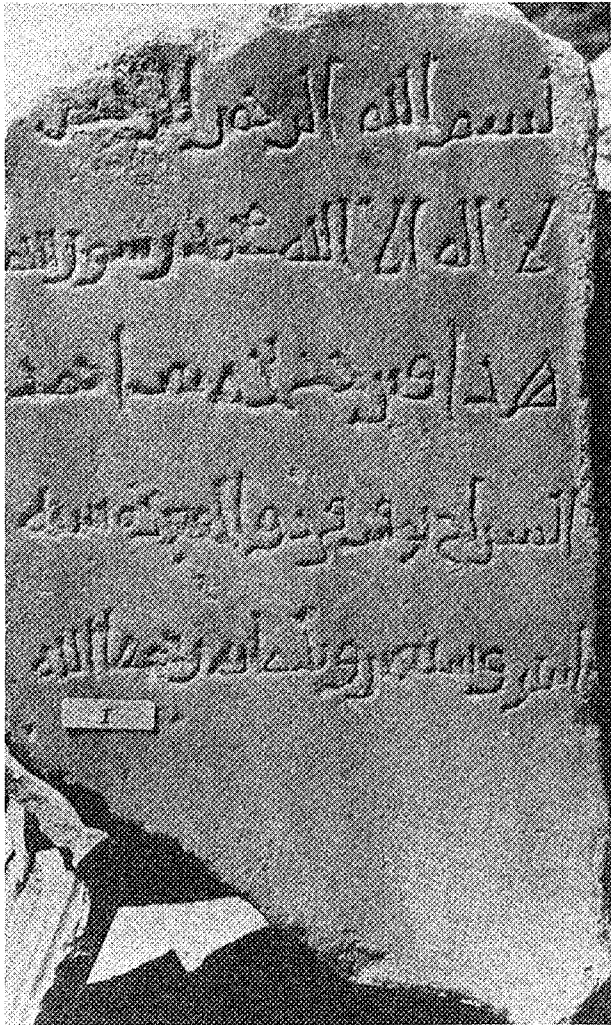 بسم الله الرحمن الرحيم
لا اله الا الله محمد رسول الله
هذا قبر احمد
السراج توفيت في ذي الحجة سنة
وثلثمائه رحمها الله
I